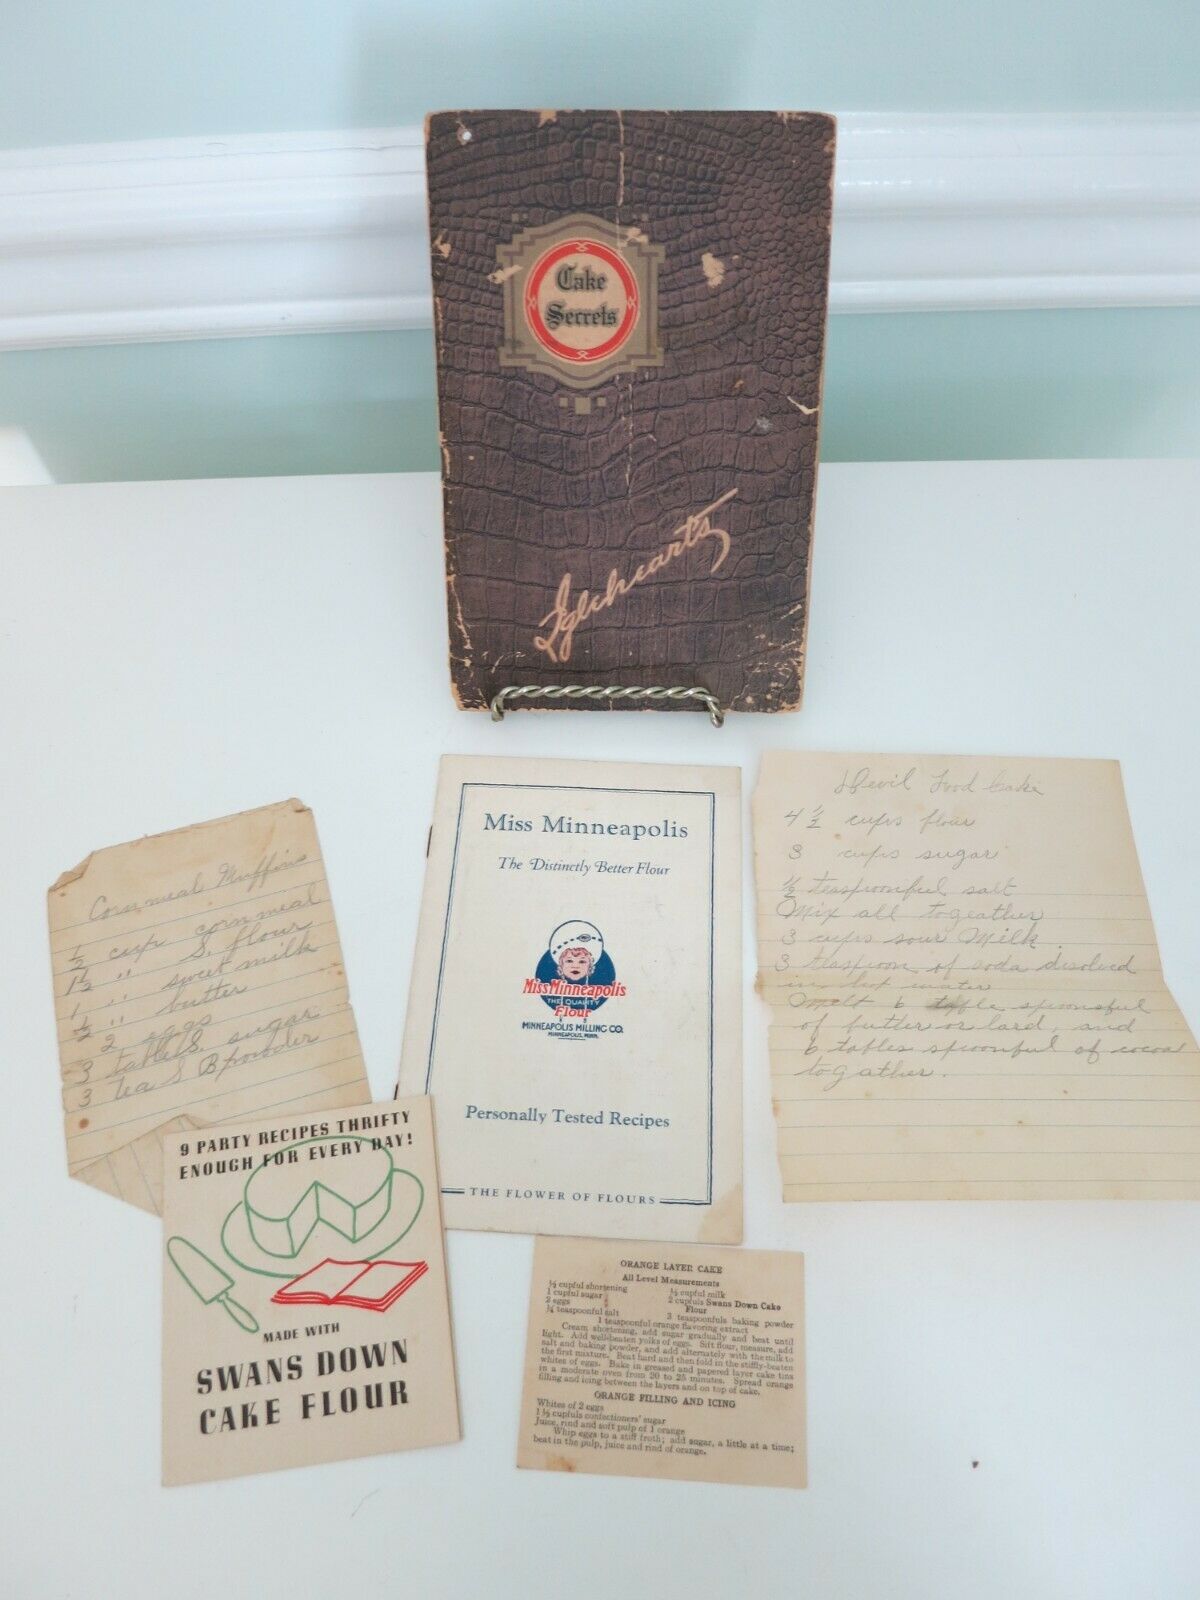 Cake
Secrets
Igleheart's
Miss Minneapolis
The Distinctly Better Flour
Miss Minneapolis
THE QUALITY
Flour
MINNEAPOLIS MILLING CO.
MINNEAPOLIS, MINN.
Personally Tested Recipes
THE FLOWER OF FLOURS
Devil Food Cake
4 1/2 cups flour
3 cups sugar
1/2 teaspoonful salt
Mix all togeather
3 cups sour Milk.
3 teaspoon of soda disolved
in hot water
Melt 6 table spoonsful
of butter or lard, and
6 tables spoonful of cocoa
togather.
Corn meal Muffins
1/2 cup corn meal
1 1/2 " S. flour
1 " sweet milk
1/2 " butter
2 eggs
3 tableS. sugar
3 tea S Bpowder
9 PARTY RECIPES THRIFTY
ENOUGH FOR EVERY DAY!
MADE WITH
SWANS DOWN
CAKE FLOUR
ORANGE LAYER CAKE
All Level Measurements
½ cupful shortening ½ cupful milk
1 cupful sugar 2 cupfuls Swans Down Cake
2 eggs Flour
¼ teaspoonful salt 3 teaspoonfuls baking powder
1 teaspoonful orange flavoring extract
Cream shortening, add sugar gradually and beat until
light. Add well-beaten yolks of eggs. Sift flour, measure, add
salt and baking powder, and add alternately with the milk to
the first mixture. Beat hard and then fold in the stiffly-beaten
whites of eggs. Bake in greased and papered layer cake tins
in a moderate oven from 20 to 25 minutes. Spread orange
filling and icing between the layers and on top of cake.
ORANGE FILLING AND ICING
Whites of 2 eggs
1 ½ cupfuls confectioners' sugar
Juice, rind and soft pulp of 1 orange
Whip eggs to a stiff froth; add sugar, a little at a time;
beat in the pulp, juice and rind of orange.